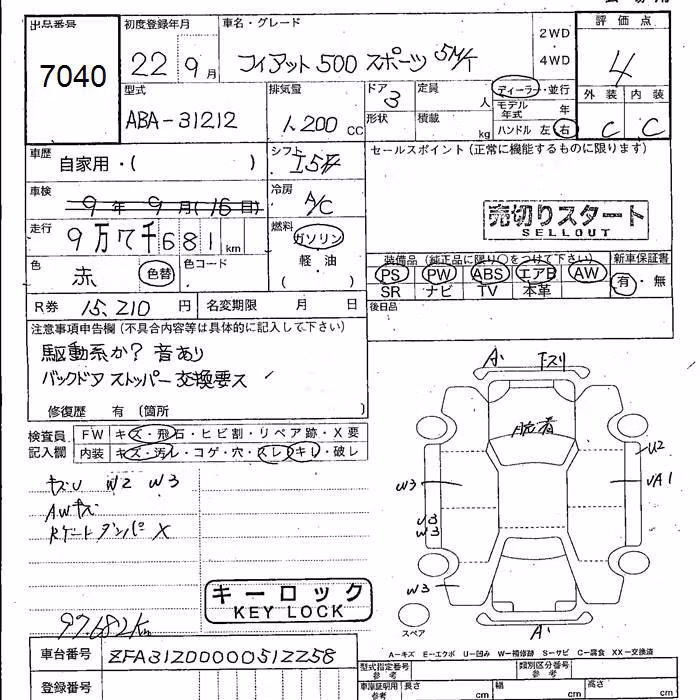 出品番号
7040
初度登録年月
22 9月
車名・グレード
フィアット 500 スポーツ 5M/T
2WD
4WD
評価点
4
外装 内装
C C
型式
ABA-31212
排気量
1,200 CC
ドア
3
形状
定員
人
積載
kg
ディーラー・並行
モデル年式 年
ハンドル 左・右
車歴
自家用・( )
シフト
I5F
セールスポイント(正常に機能するものに限ります)
車検
9年9月(16日)
冷房
A/C
売切りスタート
SELLOUT
走行
9万7千681km
燃料
ガソリン
軽・油
( )
色
赤
色替
色コード
装備品(純正品に限り〇をつけて下さい)
PS PW ABS エアB AW
SR ナビ TV 本革
新車保証書
有・無
後日品
R券 15,210 円
名変期限 月 日
注意事項申告欄(不具合内容等は具体的に記入して下さい)
駆動系か? 音あり
バックドア ストッパー 交換要ス
修復歴 有(箇所 )
検査員
記入欄
FW キズ・飛石・ヒビ割・リペア跡・X要
内装 キズ・汚レ・コゲ・穴・スレ・キレ・破レ
キズU W2 W3
AWキズ
Rゲートダンパー X
キーロック
KEY LOCK
97.682Km
A' 下スリ
脱着
U2
W3
UA1
U3
W3
W3
A'
スペア
A-キズ E-エクボ U-凹み W-補修跡 S-サビ C-腐食 XX-交換済
車台番号
ZFA31200000512258
登録番号
型式指定番号
参考
類別区分番号
参考
車庫証明用
参考
長さ cm
幅 cm
高さ cm